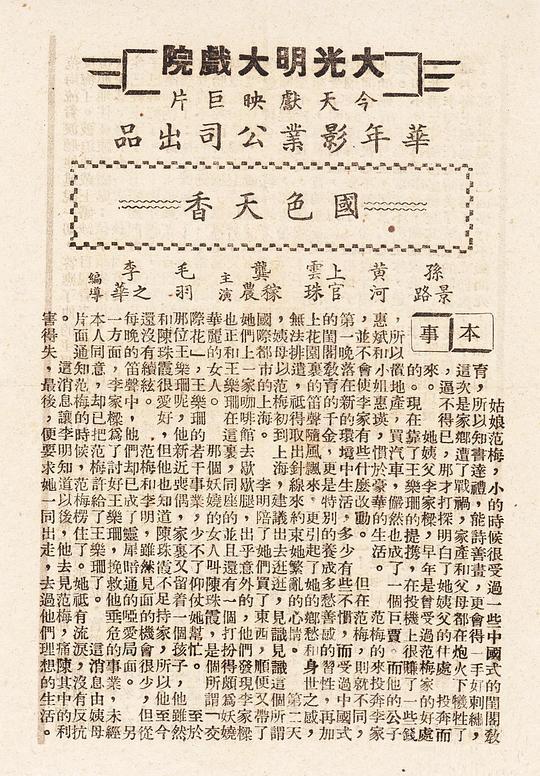 大光明大戲院
今天獻映巨片
華年影業公司出品
國色天香
孫景路
黃河
上官雲珠
龔稼農
主演
毛羽
李之華
編導
本事
姑娘范梅,小的時候很受過一些中國式的閨閣敎
育,所以知書達禮,能詩善畫,更會得一手好刺繡,
這次是家鄉遭了戰禍,家產和父母都在炮火下犧牲了
,逼不得已,那才打探明白了她姨父的住處,投奔而
來。她姨父李家樑,早年是曾受過范梅家的好處
的。現在靠了王樂珊的提携,在投機上很賺了一些錢
,所以置地產,買汽車,儼然也成了一個巨賈。而他的公子
惠斌和小姐惠瑛,慣於豪華的生活。范梅的來投奔李家
,並不會使李家有些什麼改動。但在范梅,則就不同,
第一晚落在新的環境中生活,多少有些不慣,而受過中國式
的閨閣敎育的千金,更是特別的養成多愁善感的特性,再加
上花園裏的笛聲隨風飄來,更引起了她的鄉愁和身世之感,
無法排遣,祇得取出針線來約束她繁亂的心情。第二天
,姨母以范梅初到上海,建議出去逛逛,見識見識這個所謂
國際都市的上海。李明陪了她們買了東西,順便又帶了
她們上一家咖啡館去歇歇腿,出乎意外的,他們發現李家樑
也正和王樂珊在這裏,同座的並且還有一個打扮得頗爲妖嬈
華麗的女人。那個妖嬈的女人叫陳珠霞,是個所謂「交
際花」,王樂珊的若干事業,少不了仰仗她幫忙。至於
那位王樂珊呢,他新近喪偶,家裏又留着一個孩子,他雖然
和陳珠霞很愛好,但他也知道陳珠霞不足持家,所以他至今
還沒有續絃。范梅和李明,雖然見面的機會很少,但從
每晚的笛聲中,他們却已成了靈犀暗通的啞愛局面。另
一方面,李家樑爲了討好王樂珊,挽救他垂危的事業,未經
本人同意,却已把范梅許給了王樂珊了。這消息由姨母
片面通知范梅的時候,范梅楞住了,她祇有流淚,沒有反抗
。這消息讓李明知道以後,他去見范梅,痛陳其中的利
害得失,最後,便要求她一同出走,去過他們理想的生活。